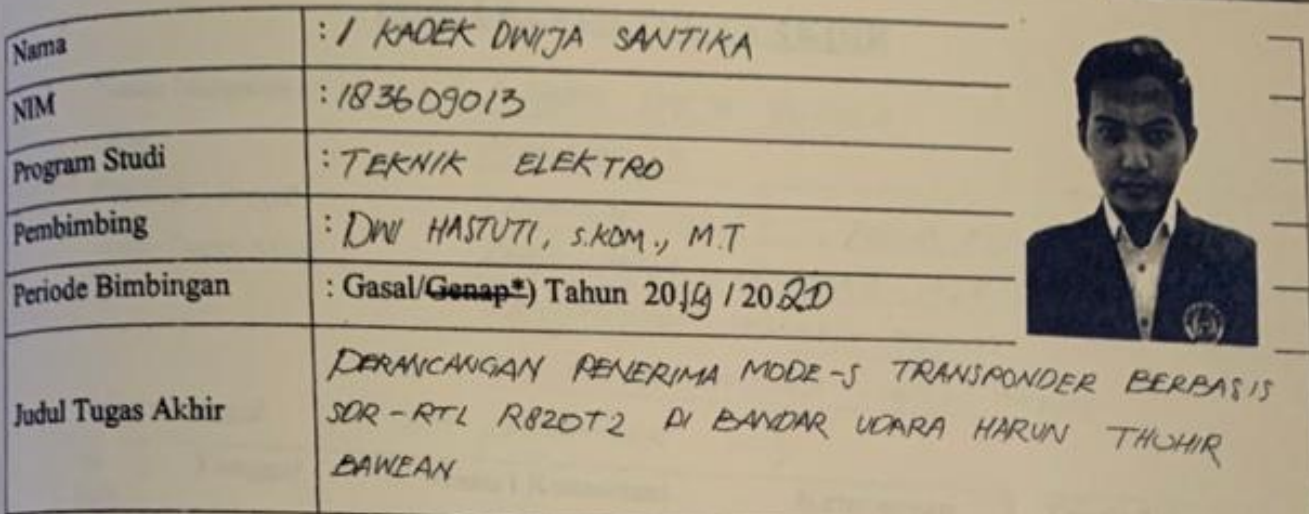 Nama : I KADEK DWIJA SANTIKA
NIM : 183609013
Program Studi : TEKNIK ELEKTRO
Pembimbing : DWI HASTUTI, S.KOM., M.T
Periode Bimbingan : Gasal/Genap*) Tahun 2019 / 2020
Judul Tugas Akhir
PERANCANGAN PENERIMA MODE-S TRANSPONDER BERBASIS
SDR-RTL R820T2 DI BANDAR UDARA HARUN THOHIR
BAWEAN